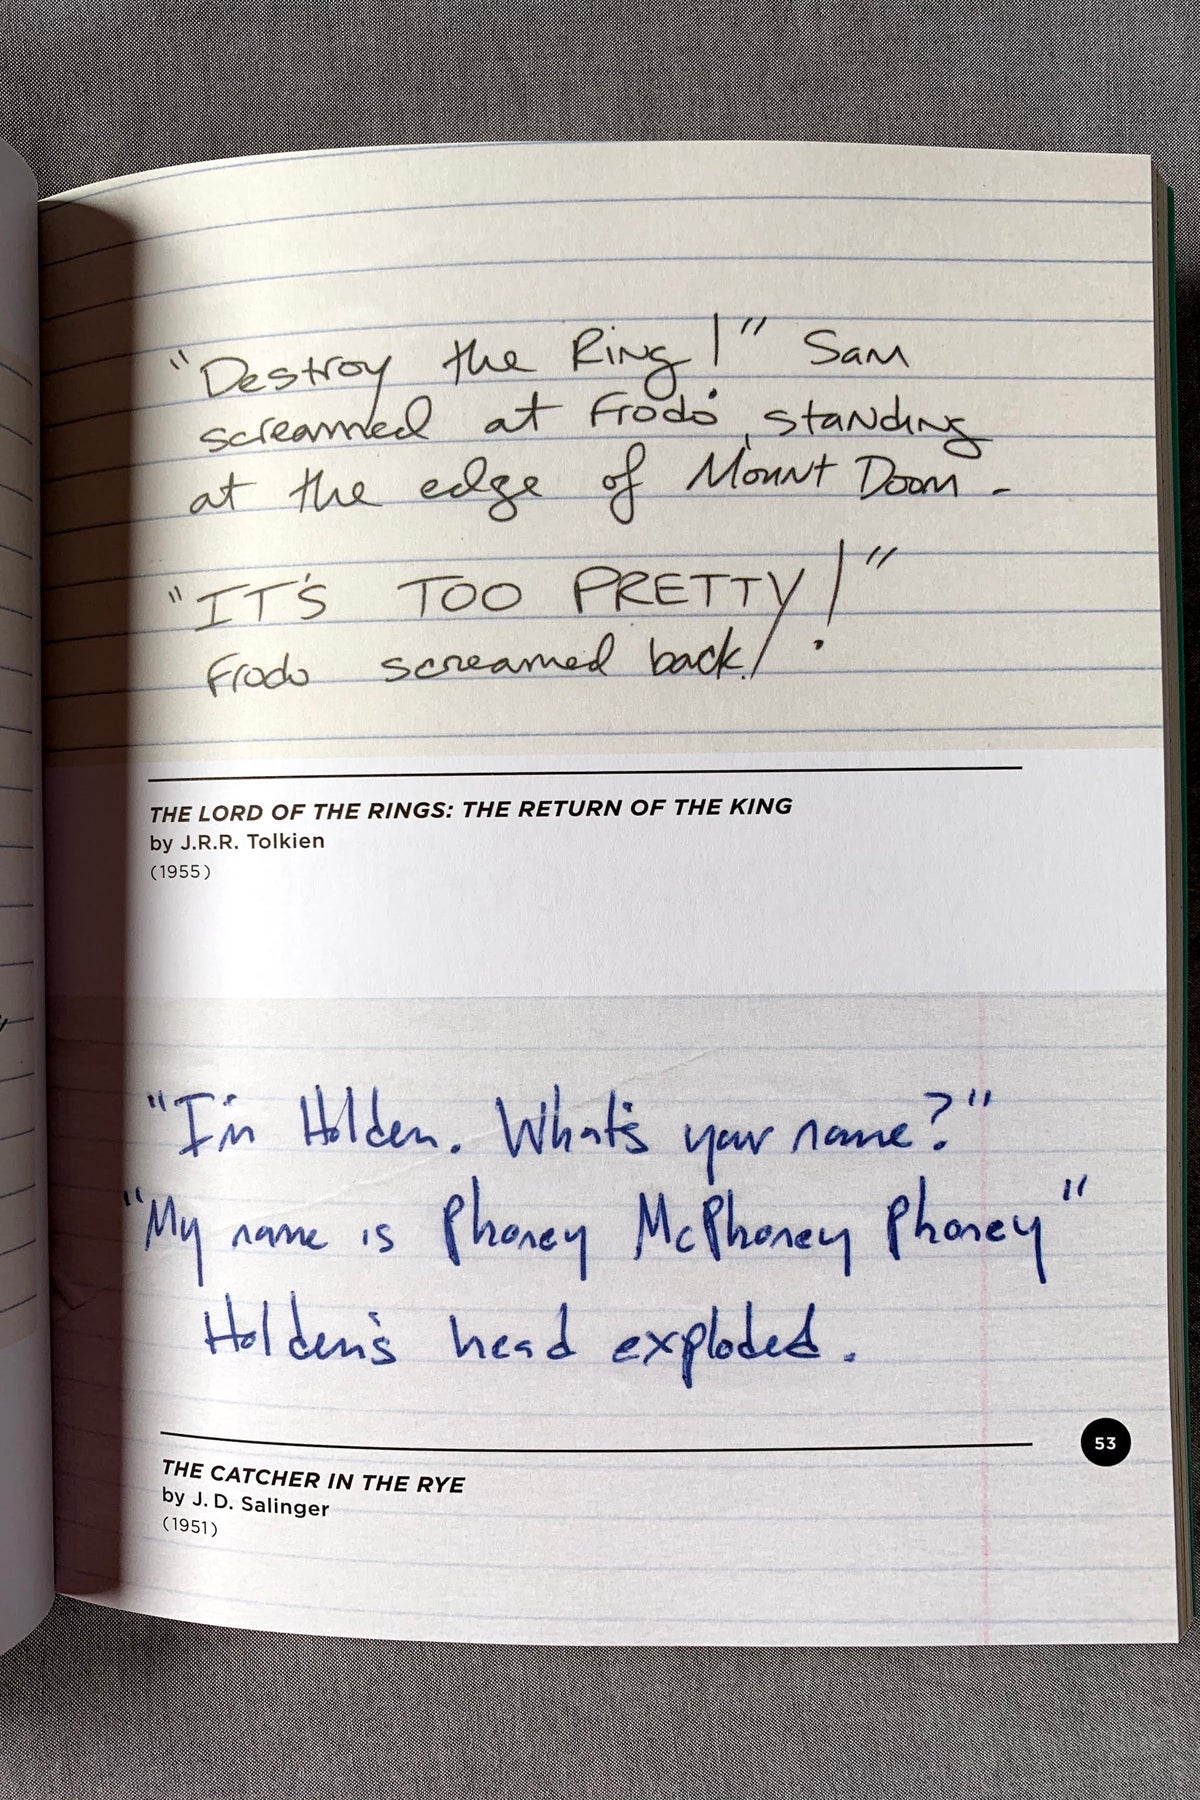 "Destroy the Ring!" Sam
screamed at Frodo, standing
at the edge of Mount Doom.
"IT'S TOO PRETTY!"
Frodo screamed back!
THE LORD OF THE RINGS: THE RETURN OF THE KING
by J.R.R. Tolkien
(1955)
"I'm Holden. What's your name?"
"My name is Phoney McPhoney Phoney"
Holden's head exploded.
53
THE CATCHER IN THE RYE
by J. D. Salinger
(1951)